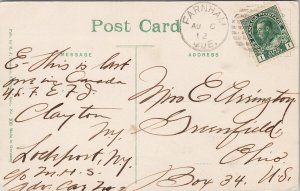 Post Card
FARNHAM
AU 6
12
QUE.
MESSAGE
ADDRESS
E this is last
one in Canada
Clayton
Ny.
Lockport, Ny.
Mrs E Errington
Greenfield,
Ohio
Box 34. U.S.